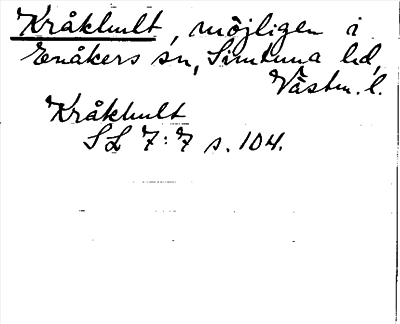 Kråkhult, möjligen i
Enåkers sn, Simtuna hd,
Västm. l.
Kråkhult
SL 7:7 s. 104.